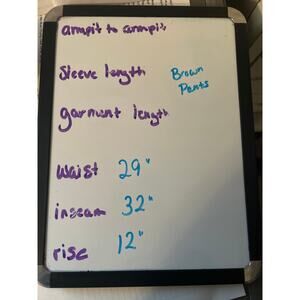 armpit to armpit
sleeve length
Brown
Pants
garment length
waist 29"
inseam 32"
rise 12"